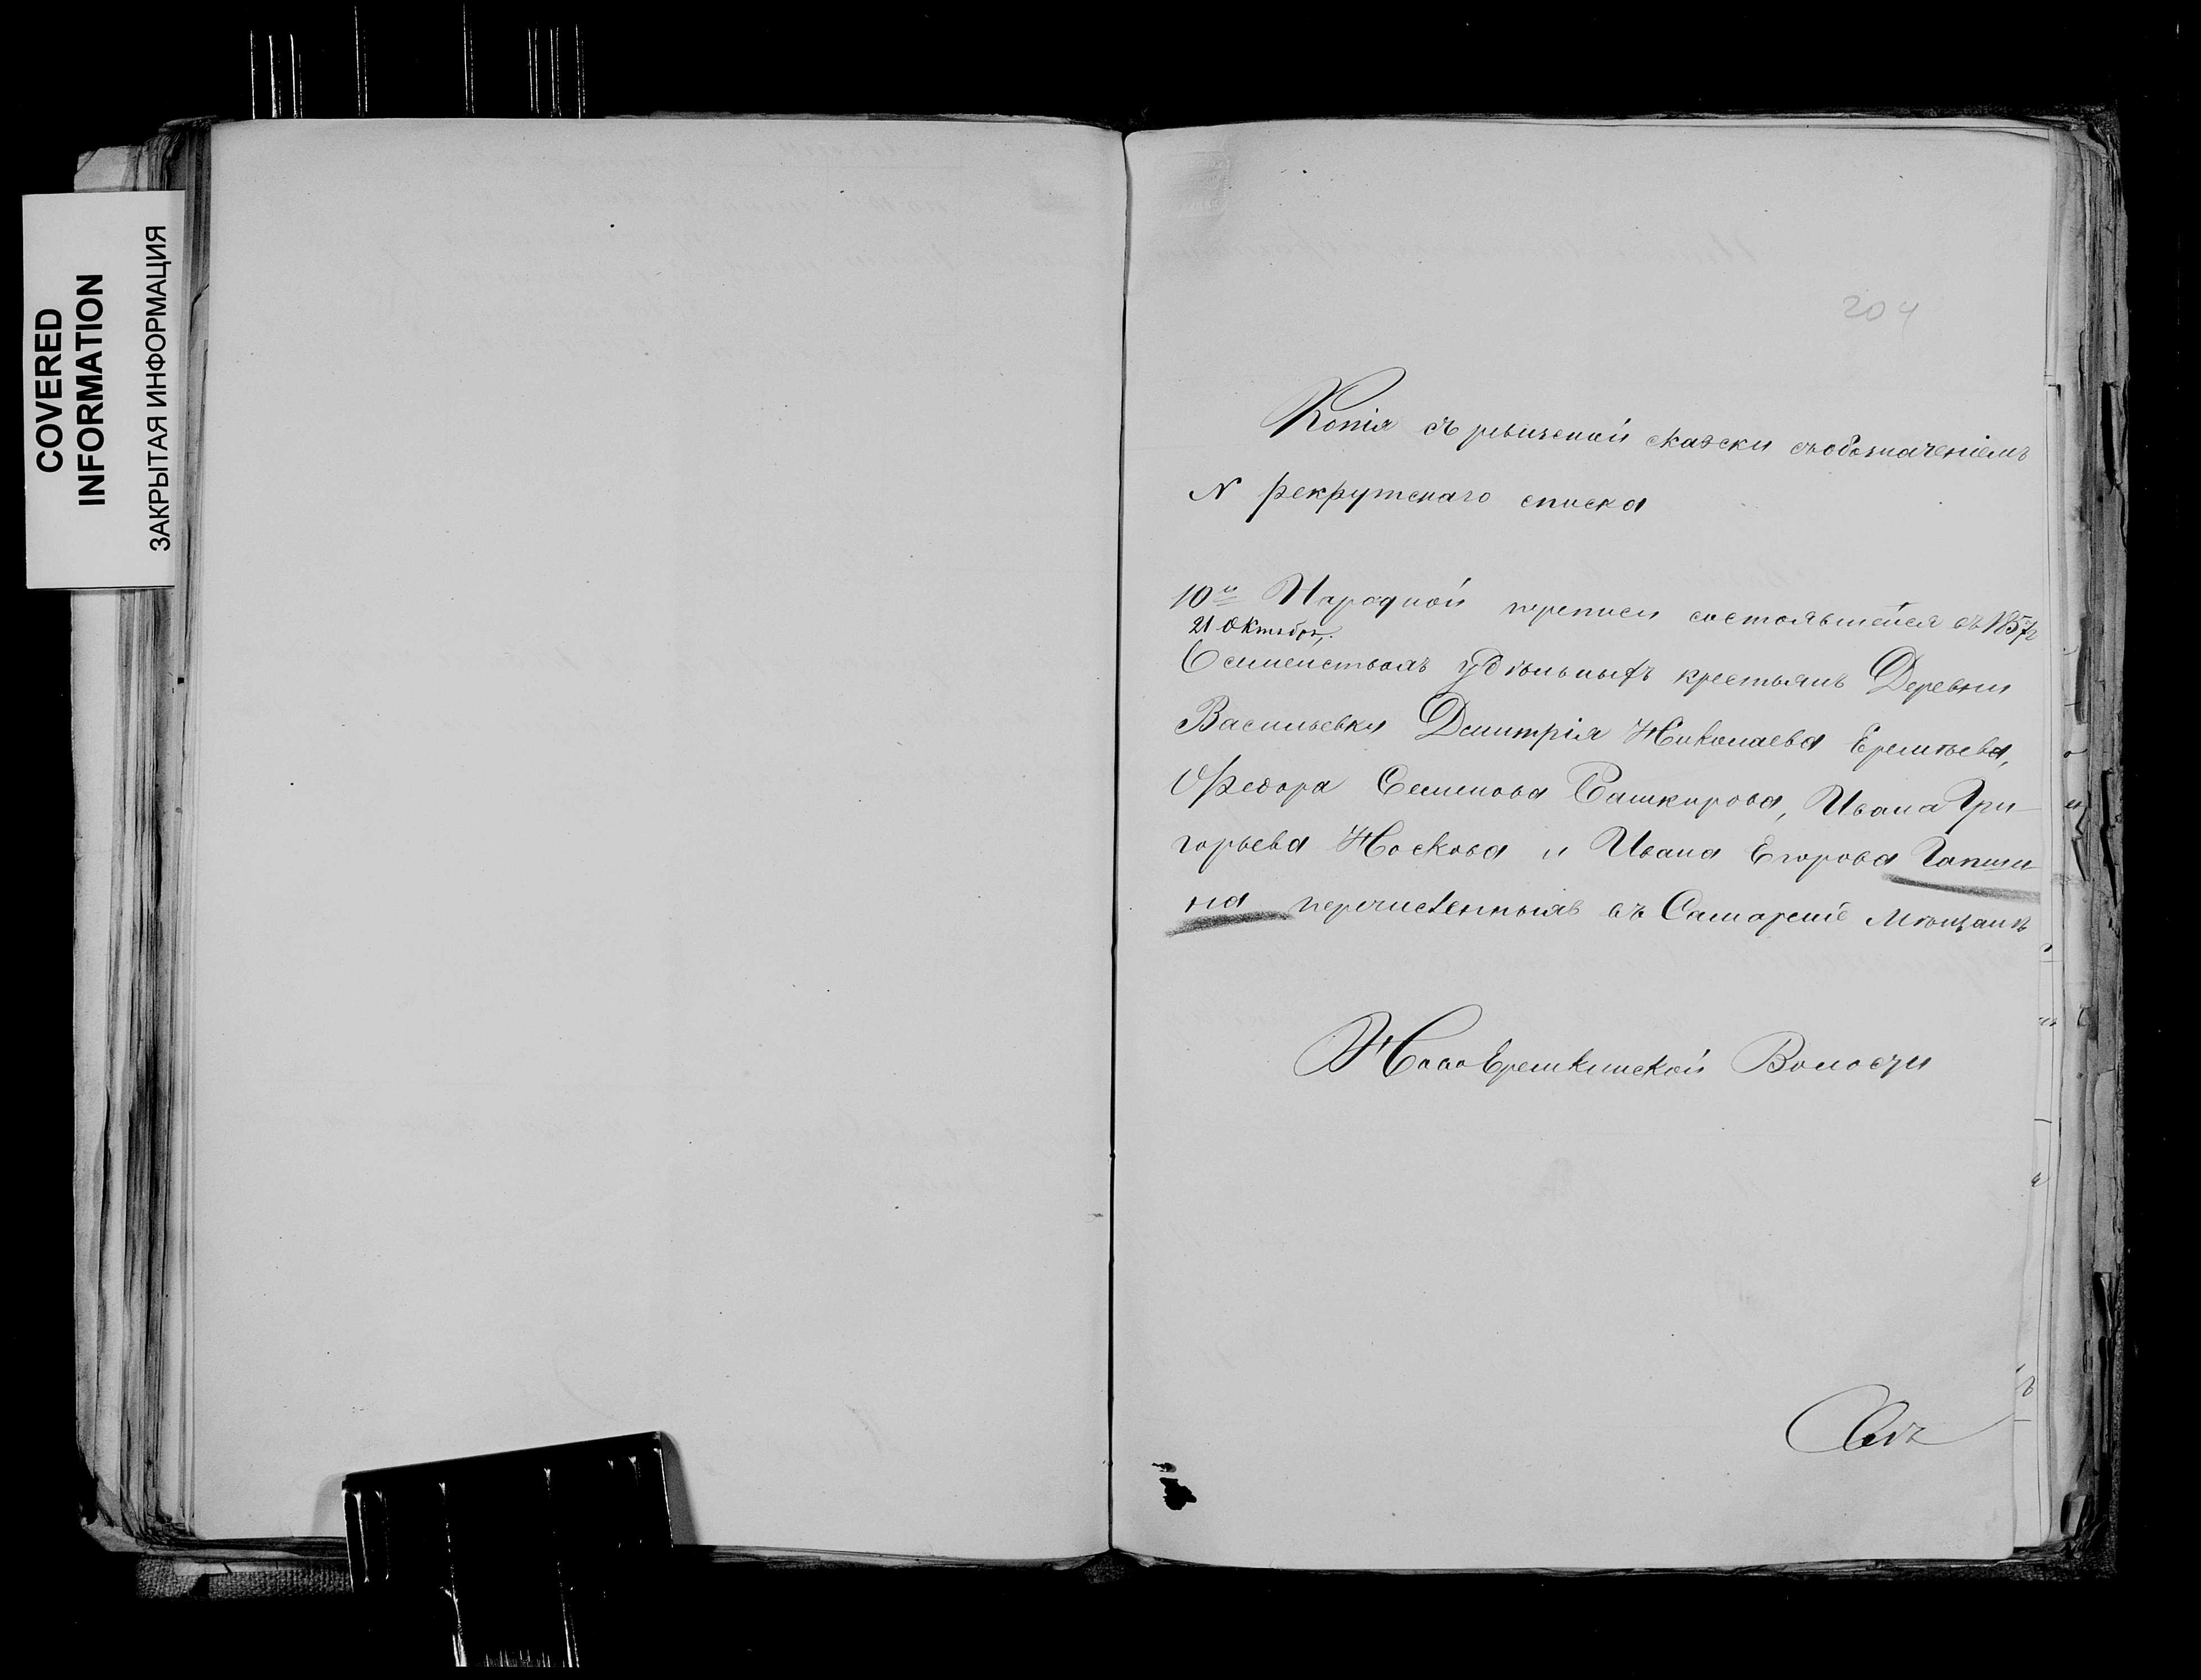 COVERED
INFORMATION
ЗАКРЫТАЯ ИНФОРМАЦИЯ
204
Копія съ ревизской сказки съ обозначеніемъ
N рекрутскаго списка
10й Народной переписи состоявшейся въ 1857г
21 Октября
Семействамъ удѣльныхъ крестьянъ Деревни
Васильевки Дмитрія Николаева Еремѣева,
Федора Семенова Башкирова, Ивана Гри-
горьева Носкова и Ивана Егорова Гапши-
на перечисленныхъ въ Самарскіе Мѣщане
НовоЕремкинской Волости